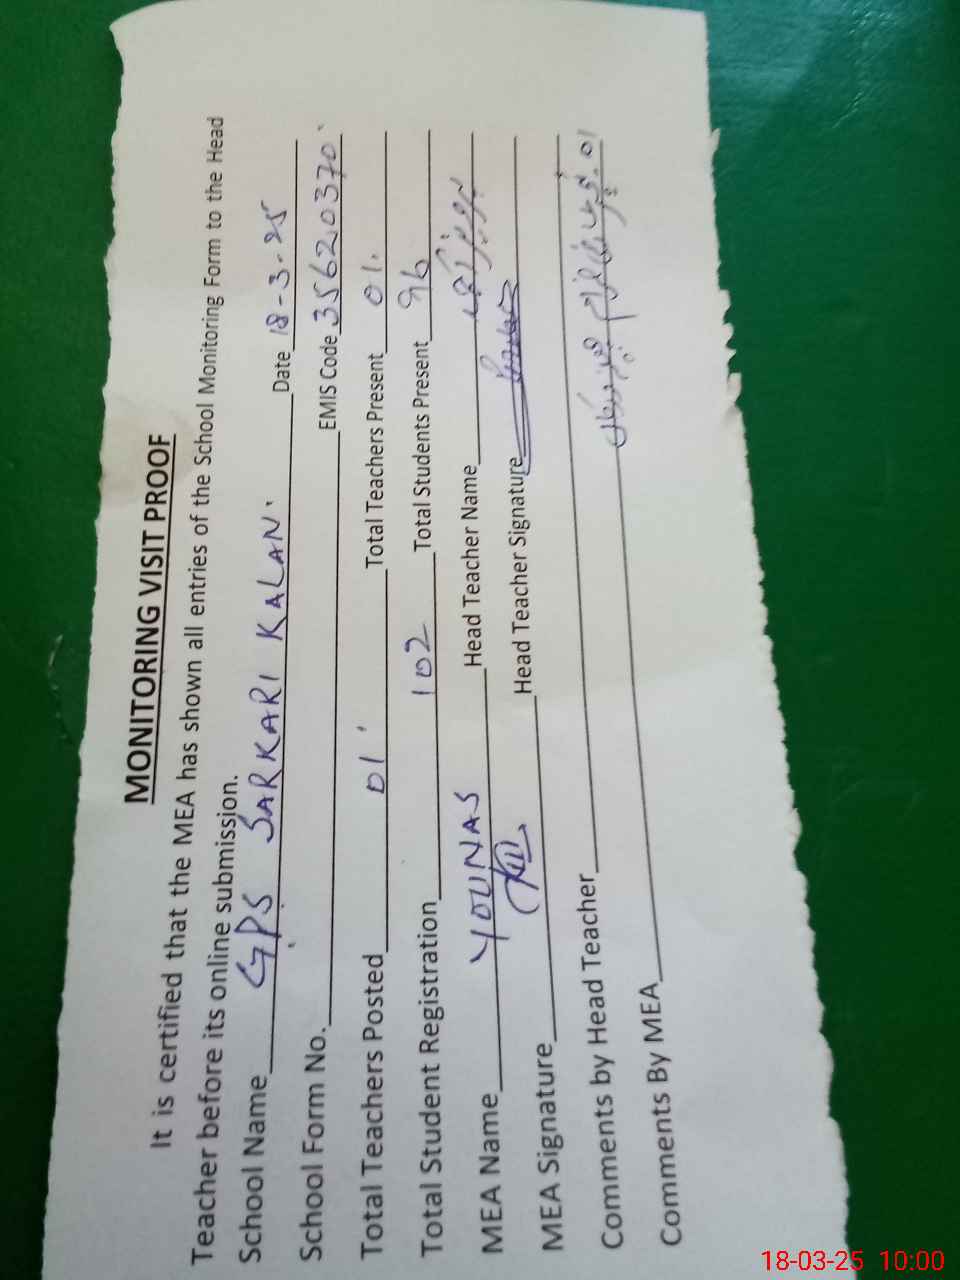 MONITORING VISIT PROOF
It is certified that the MEA has shown all entries of the School Monitoring Form to the Head
Teacher before its online submission.
School Name GPS SARKARI KALAN. Date 18-3-25
School Form No. EMIS Code 35620370
Total Teachers Posted 01 Total Teachers Present 01.
Total Student Registration 102 Total Students Present 96
MEA Name YOUNAS Head Teacher Name
MEA Signature Head Teacher Signature
Comments by Head Teacher
Comments By MEA
18-03-25 10:00